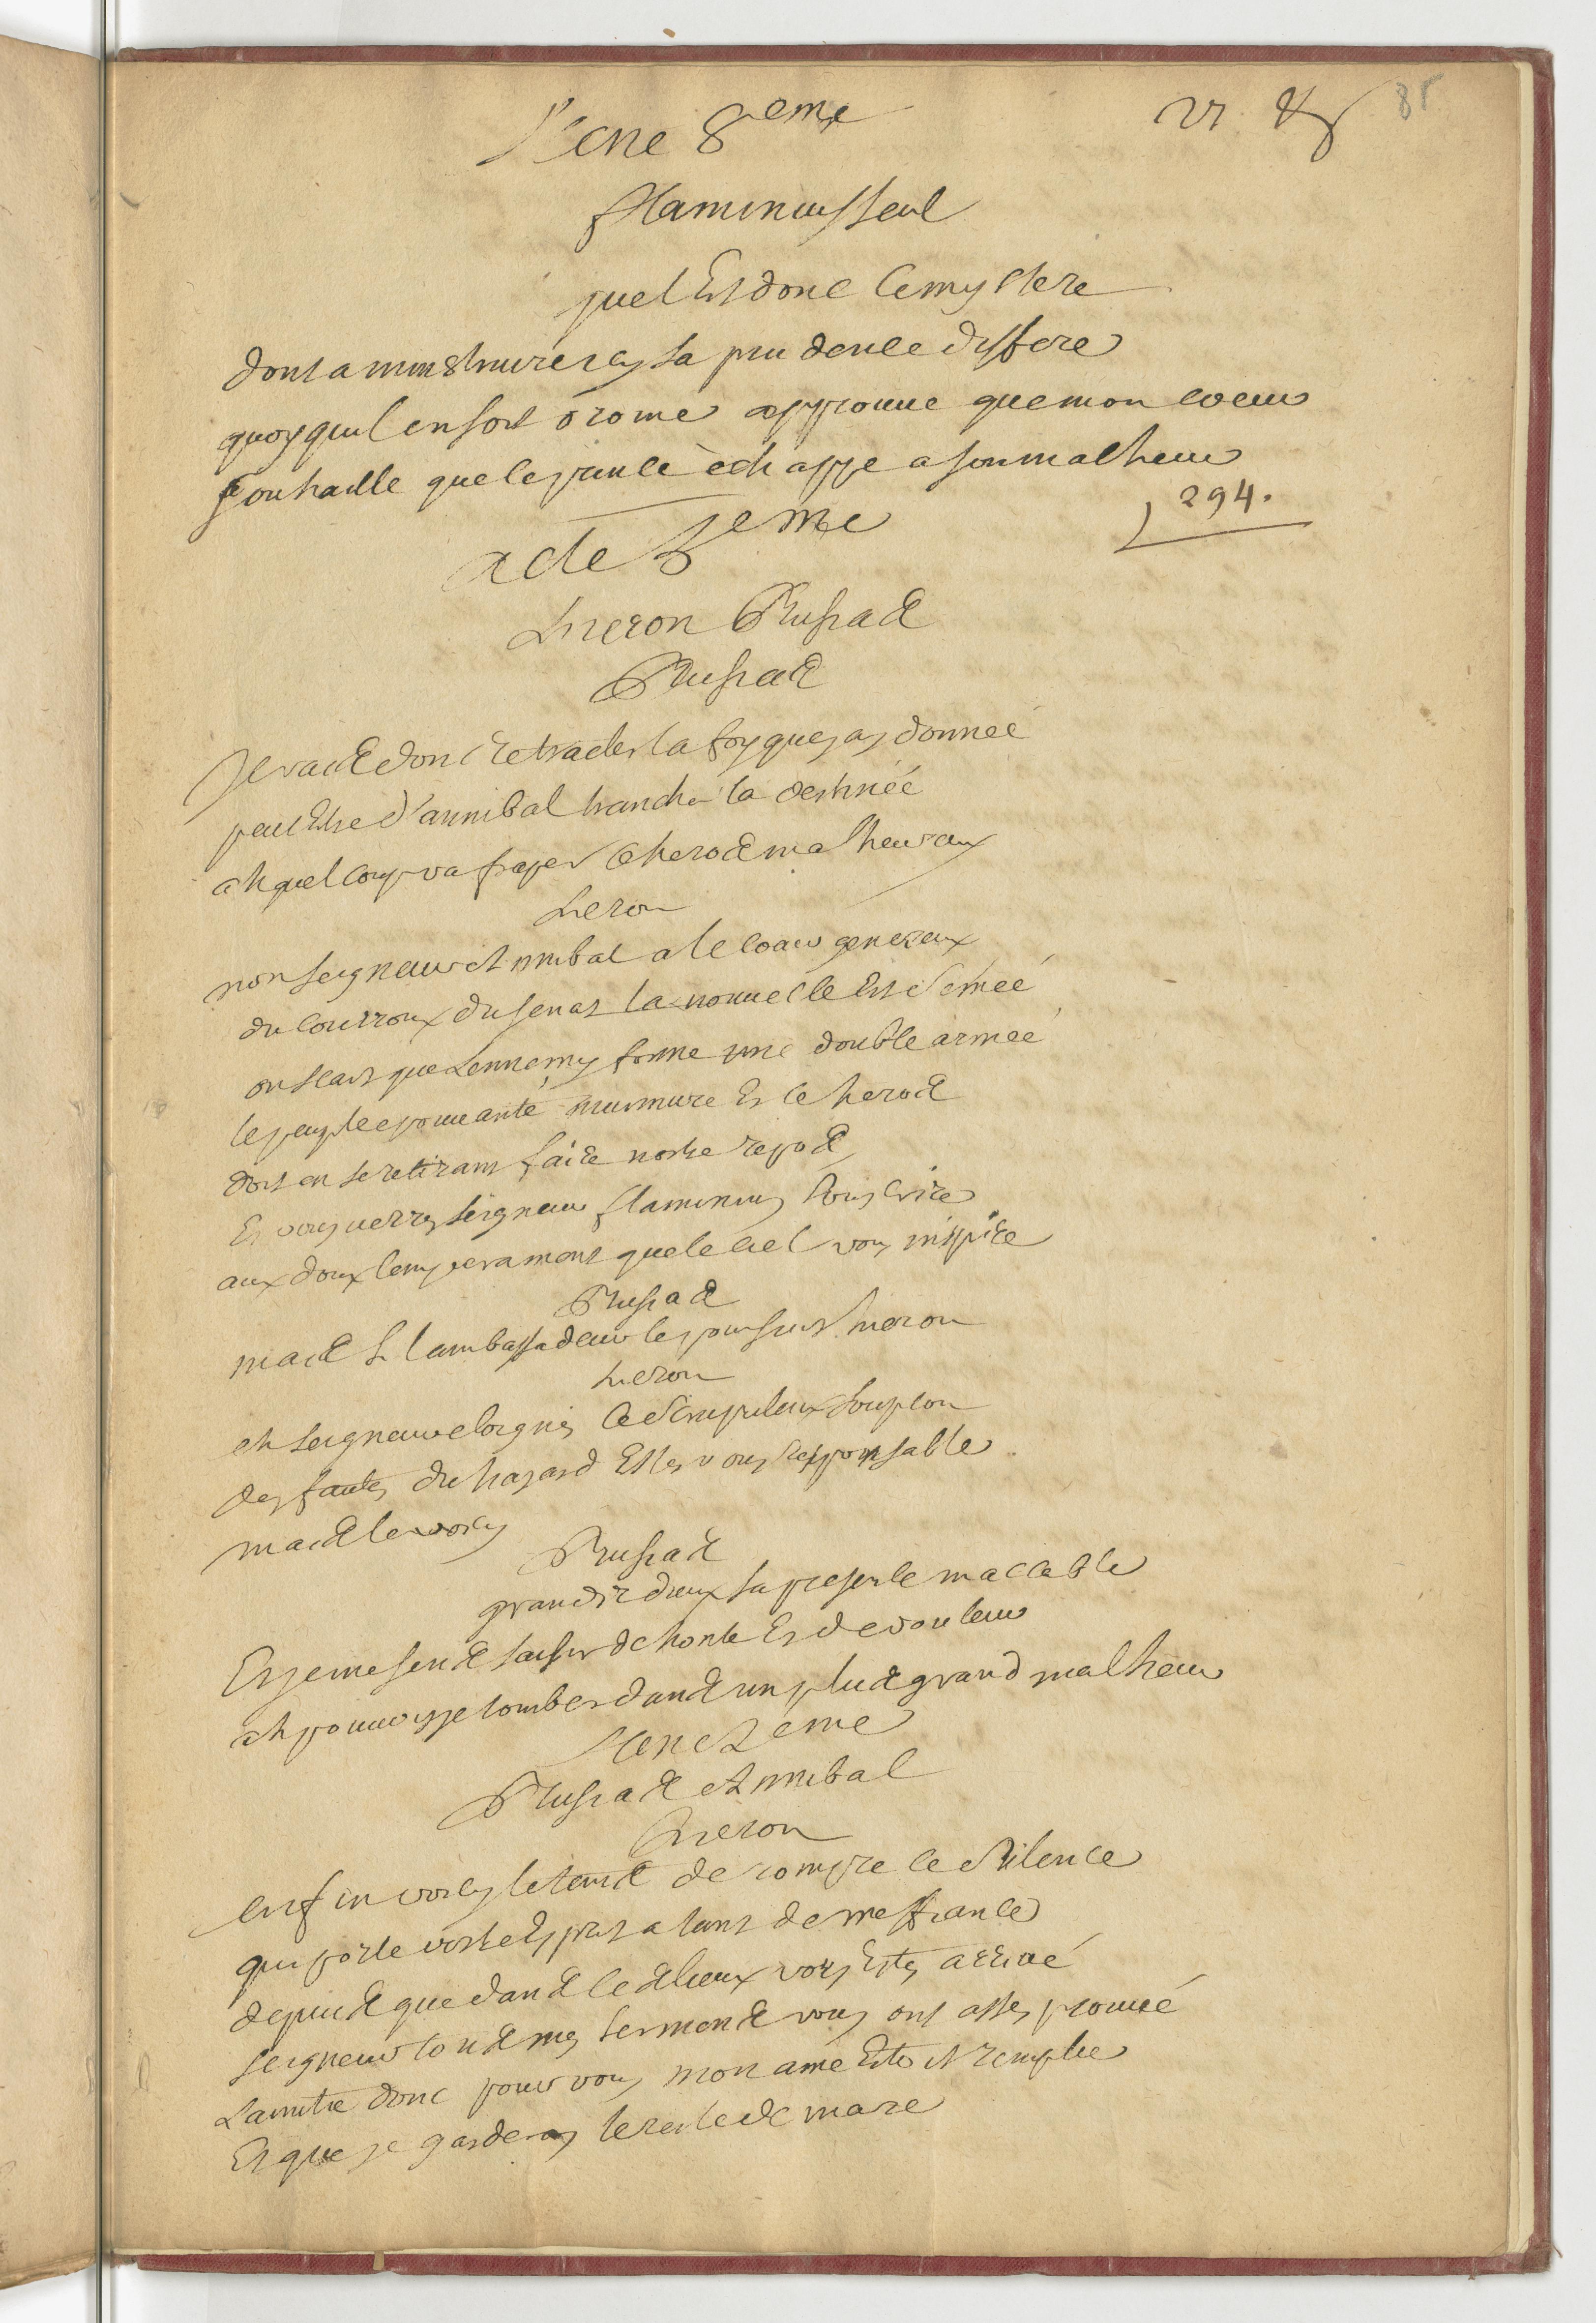 Scene 8eme
27 85
flaminius seul
quel Est donc le mystere
dont a minstruire icy sa prudence differe
quoyquil en soit o rome approuue que mon coeur
souhaitte que le prince èchappe a son malheur
294.
acte 5eme
hieron Prusias
Prusias
Je vais donc retracter la foy que jay donneé
peut Estre d'annibal trancher la destineé
ah quel coup va fraper ce heros malheureux
hieron
non seigneur Annibal a le coeur genereux
du courroux du senat la nouuelle Est seméé
on scait que Lennemy forme une double armeé
le peuple epouuanté murmure Et ce heros
doit en se retirant faire nostre repos
Et vous uerres seigneur flaminius souscrire
aux doux temperament que le ciel vous inspire
Prusias
mais si lambassadeur le poursuit hieron
hieron
eh seigneur eloignes ce scrupuleux soupcon
des fautes du hazard Estes vous responsable
mais le voicy
Prusias
grands dieux sa presence maccable
Et je me sens saisir de honte Et de douleur
ah pouuoisje tomber dans un plus grand malheur
Scene 2eme
Prusias Annibal
hieron
enfin voicy le temps de rompre le silence
qui porte vostre Esprit a tant de meffiance
depuis que dans ces lieux vous Estes arriué
seigneur tous mes sermens vous ont asses prouué
Lamitie donc pour vous mon ame Estoit remplie
Et que je garderay le reste de ma vie